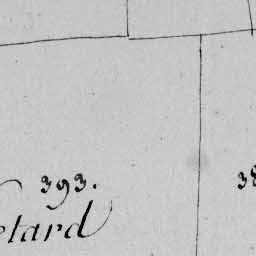 393.
etard